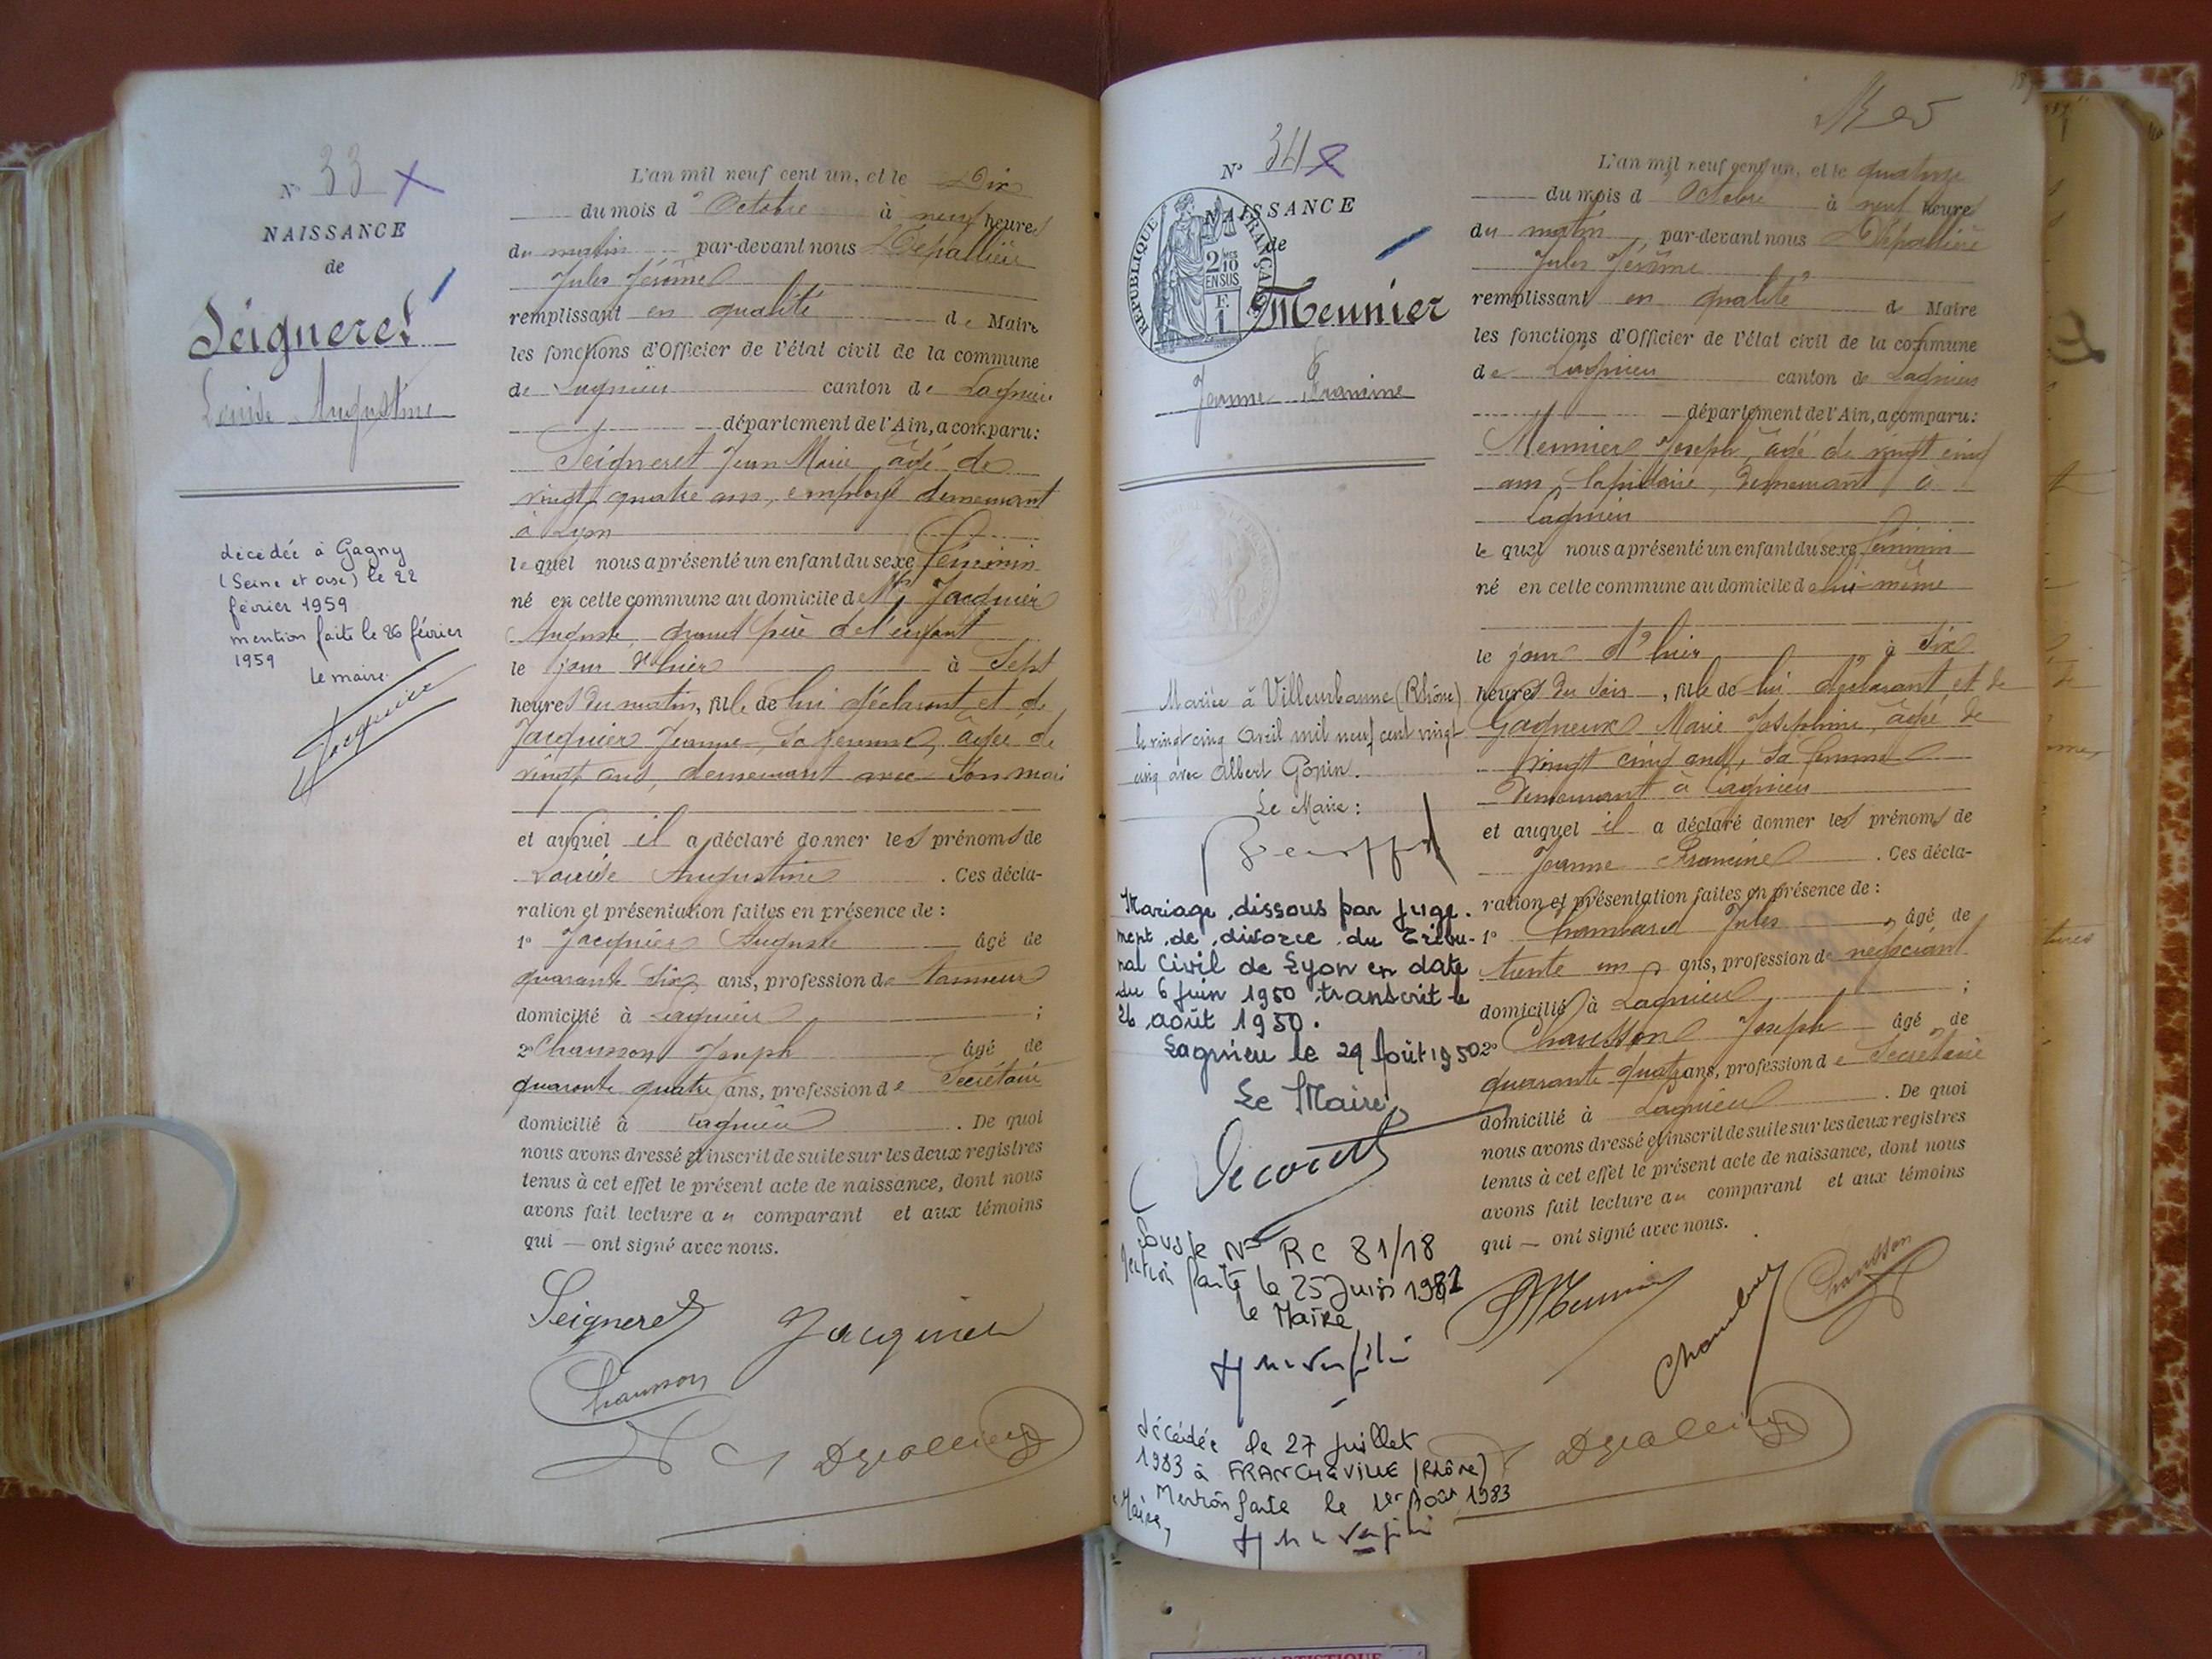 N° 33
NAISSANCE
de
Seigneret
Louise Augustine
décédée à Gagny
(Seine et oise) le 22
février 1959
mention faite le 26 février
1959
le maire
Jacquier
L'an mil neuf cent un, et le Dix
du mois d' Octobre à neuf heures
du matin par-devant nous Dépallière
Jules Jérôme
remplissant en qualité de Maire
les fonctions d'Officier de l'état civil de la commune
de Lagnieu canton de Lagnieu
département de l'Ain, a comparu:
Seigneret Jean Marie âgé de
vingt quatre ans, employé demeurant
à Lyon
lequel nous a présenté un enfant du sexe féminin
né en cette commune au domicile de Mr Jacquier
Auguste grand père de l'enfant
le jour d'hier à Sept
heures du matin, fille de lui déclarant et de
Jacquier Jeanne, sa femme, âgée de
vingt ans, demeurant avec son mari
et auquel il a déclaré donner les prénoms de
Louise Augustine . Ces décla-
ration et présentation faites en présence de :
1° Jacquier Auguste âgé de
quarante six ans, profession de tanneur
domicilié à Lagnieu ;
2° Chausson Joseph âgé de
quarante quatre ans, profession de Secrétaire
domicilié à Lagnieu . De quoi
nous avons dressé et inscrit de suite sur les deux registres
tenus à cet effet le présent acte de naissance, dont nous
avons fait lecture au comparant et aux témoins
qui — ont signé avec nous.
Seigneret Jacquier
Chausson
Dépallière
N° 34
NAISSANCE
de
REPUBLIQUE FRANÇAISE
2/10
EN SUS
F.
1
Meunier
Jeanne Francine
Mariée à Villeurbanne (Rhône)
le vingt cinq Avril mil neuf cent vingt
cinq avec Albert Gonin.
Le Maire :
Mariage dissous par juge-
ment de divorce du Tribu-
nal Civil de Lyon en date
du 6 juin 1950 transcrit le
26 août 1950.
Lagnieu le 29 Août 1950
Le Maire
Sous le N° RC 81/18
Mention faite le 25 Juin 1981
le Maire
décédée le 27 juillet
1983 à FRANCHEVILLE (Rhône)
Mention faite le 1er Août 1983
Maire,
L'an mil neuf cent un, et le quatorze
du mois d Octobre à neuf heures
du matin par-devant nous Dépallière
Jules Jérôme
remplissant en qualité de Maire
les fonctions d'Officier de l'état civil de la commune
de Lagnieu canton de Lagnieu
département de l'Ain, a comparu:
Meunier Joseph, âgé de vingt cinq
ans, lapidaire, demeurant à
Lagnieu
lequel nous a présenté un enfant du sexe féminin
né en cette commune au domicile de lui-même
le jour d'hier à six
heures du soir, fille de lui déclarant et de
Gagneux Marie Joséphine, âgée de
vingt cinq ans, sa femme
demeurant à Lagnieu
et auquel il a déclaré donner les prénoms de
Jeanne Francine . Ces décla-
ration et présentation faites en présence de :
1° Chambard Jules, âgé de
trente un ans, profession de négociant
domicilié à Lagnieu ;
2° Chausson Joseph âgé de
quarante quatre ans, profession de Secrétaire
domicilié à Lagnieu . De quoi
nous avons dressé et inscrit de suite sur les deux registres
tenus à cet effet le présent acte de naissance, dont nous
avons fait lecture au comparant et aux témoins
qui — ont signé avec nous.
Meunier Chambard Chausson
Dépallière